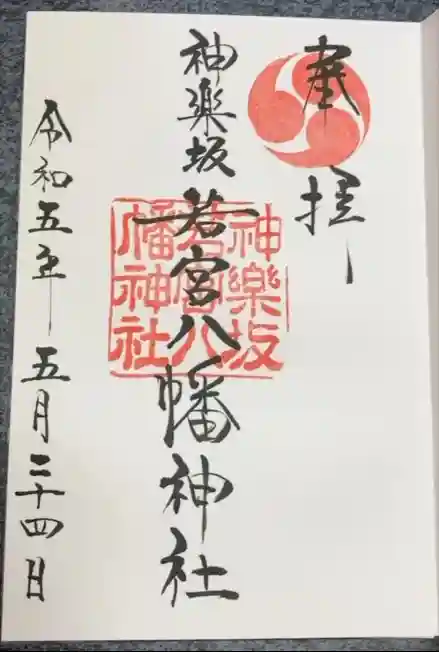 奉拝
神楽坂若宮八幡神社
神樂坂
若宮八
幡神社
令和五年五月二十四日